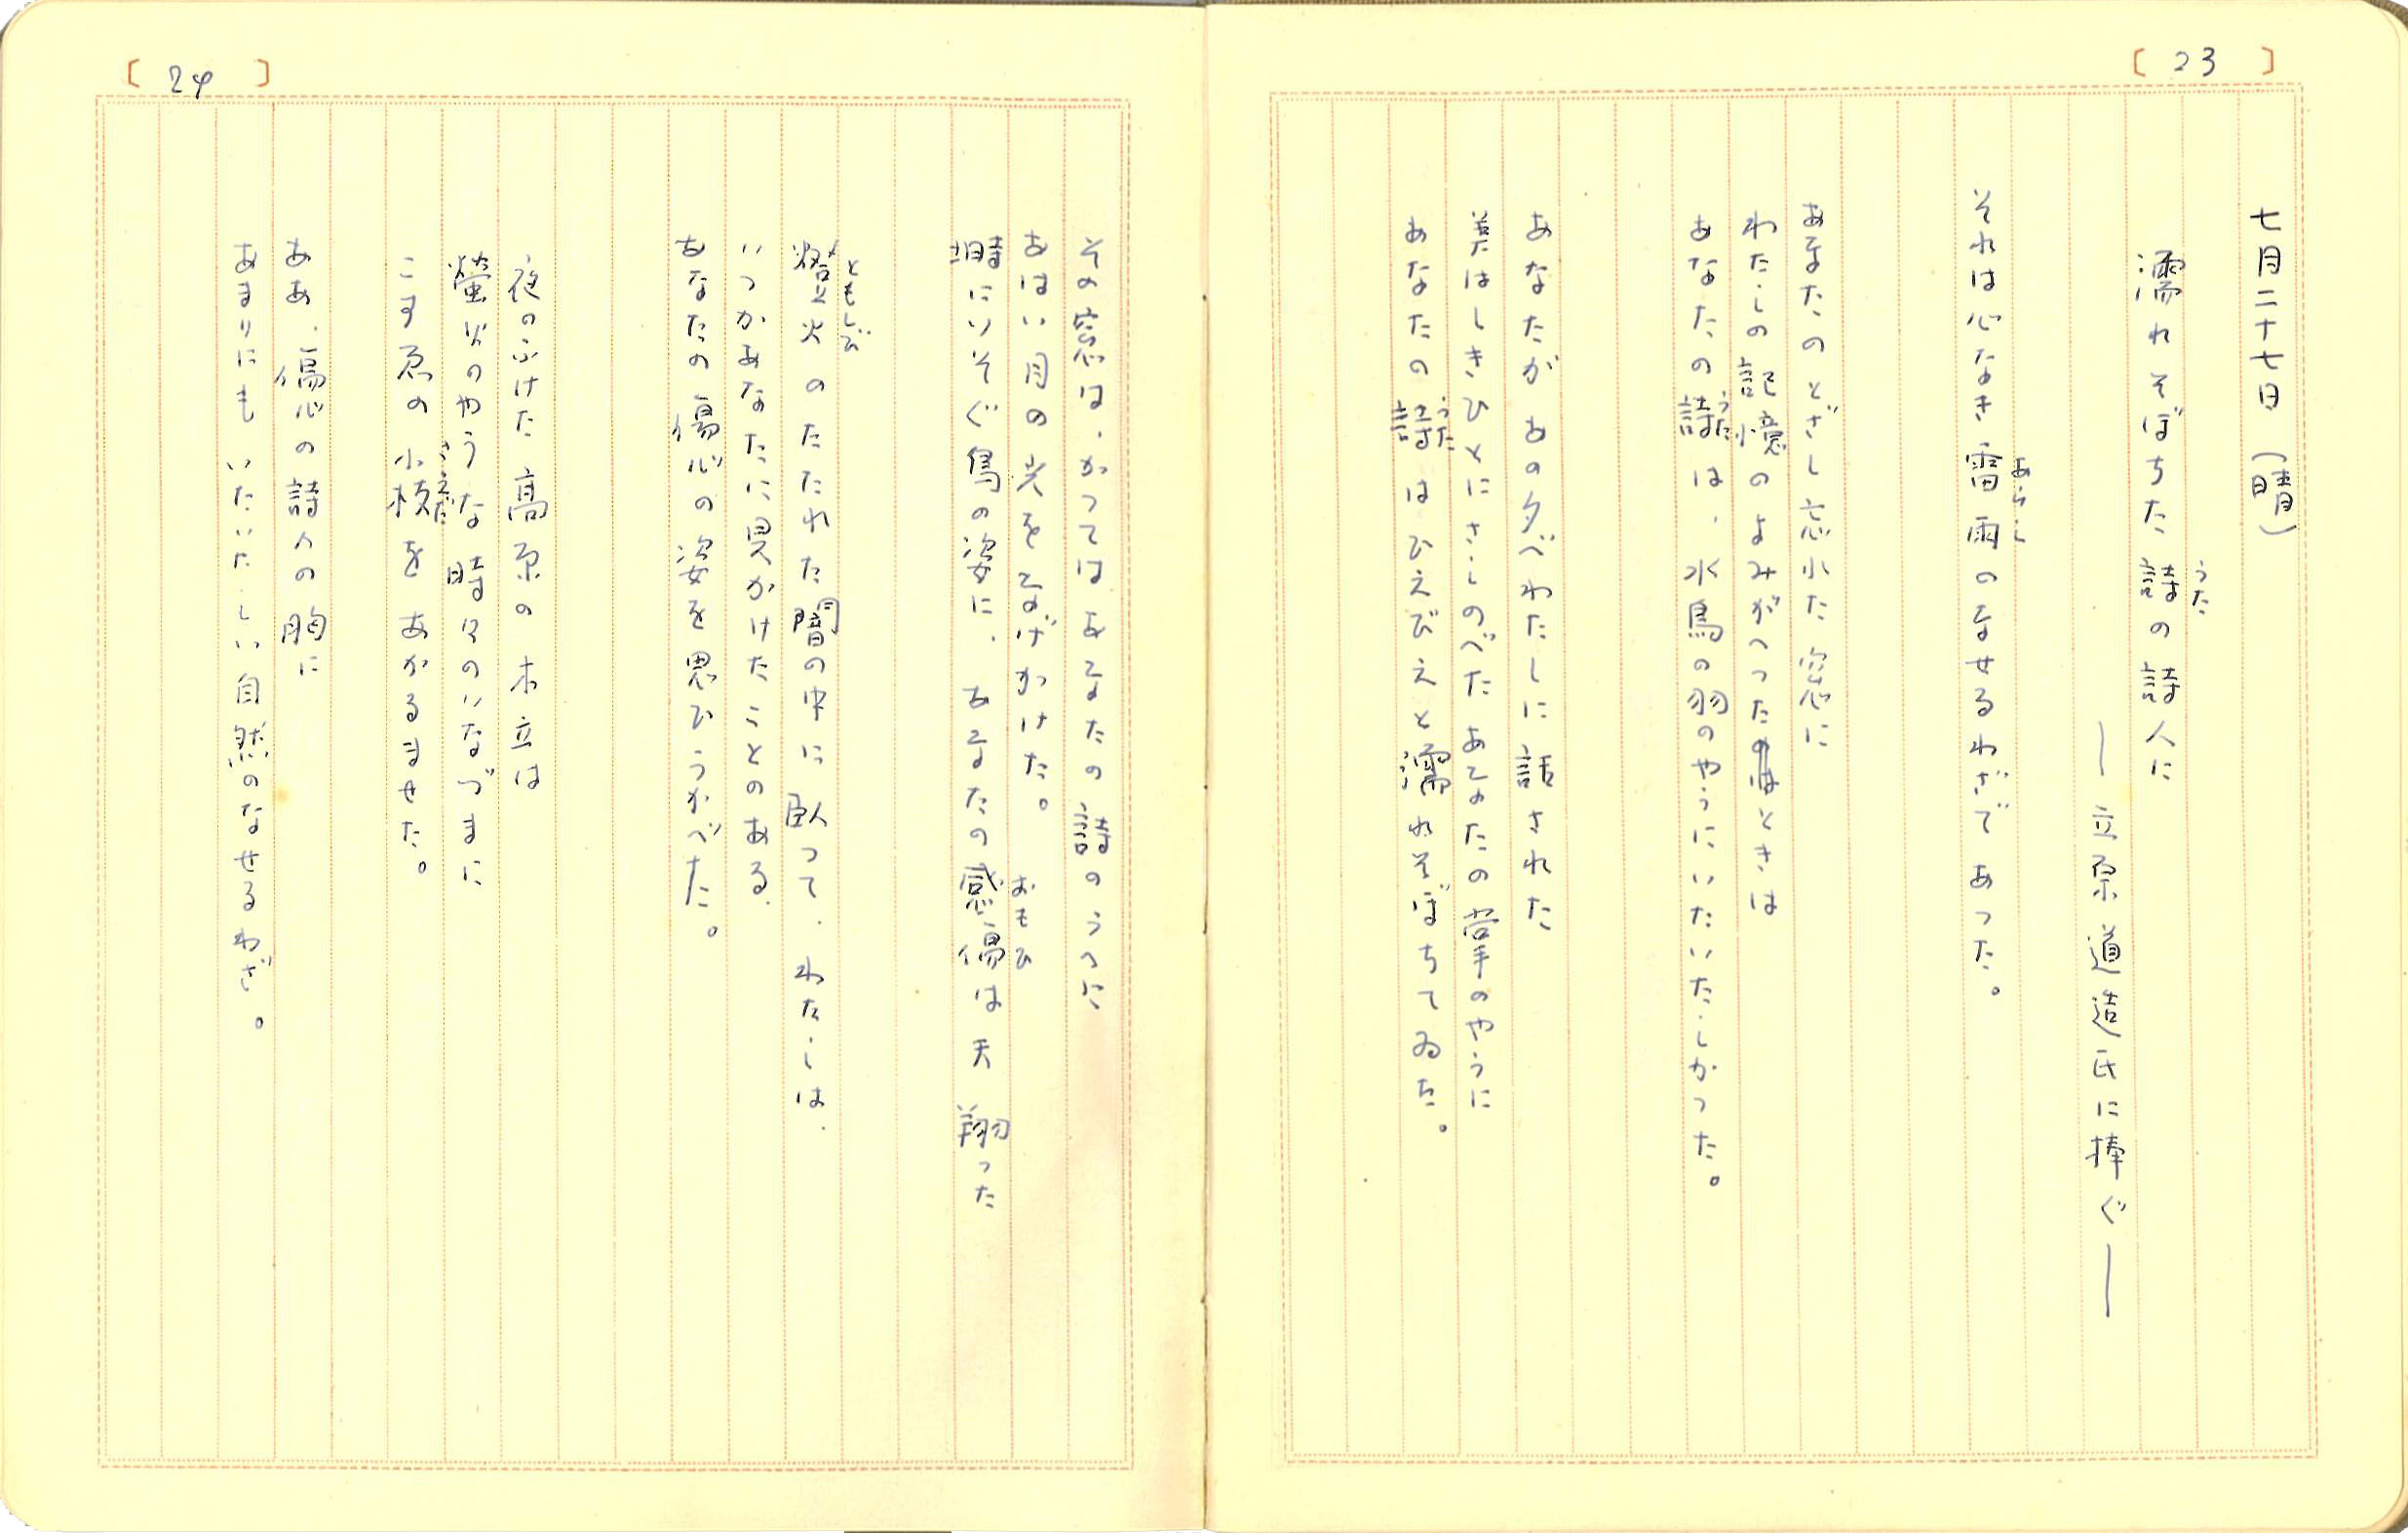 [ 23 ]
七月二十七日（晴）
濡れそぼちた詩の詩人に
うた
――立原道造氏に捧ぐ――
それは心なき雷雨のなせるわざであつた。
あらし
あなたのとざし忘れた窓に
わたしの記憶のよみがへつたときは
あなたの詩は、水鳥の羽のやうにいたいたしかつた。
うた
あなたがあの夕べわたしに話された
美はしきひとにさしのべたあなたの掌のやうに
あなたの詩はひえびえと濡れそぼちてゐた。
うた
[ 24 ]
その窓は、かつてはあなたの詩のうへに
あはい月の光をなげかけた。
塒にいそぐ鳥の姿に、あなたの感傷は天翔つた
おもひ
燈火のたたれた闇の中に臥つて、わたしは、
ともしび
いつかあなたに異かけたことのある、
あなたの傷心の姿を思ひうかべた。
夜のふけた高原の木立は
螢火のやうな時々のいなづまに
こずゑの小枝をあかるませた。
さえだ
ああ、傷心の詩人の胸に
あまりにもいたいたしい自然のなせるわざ。